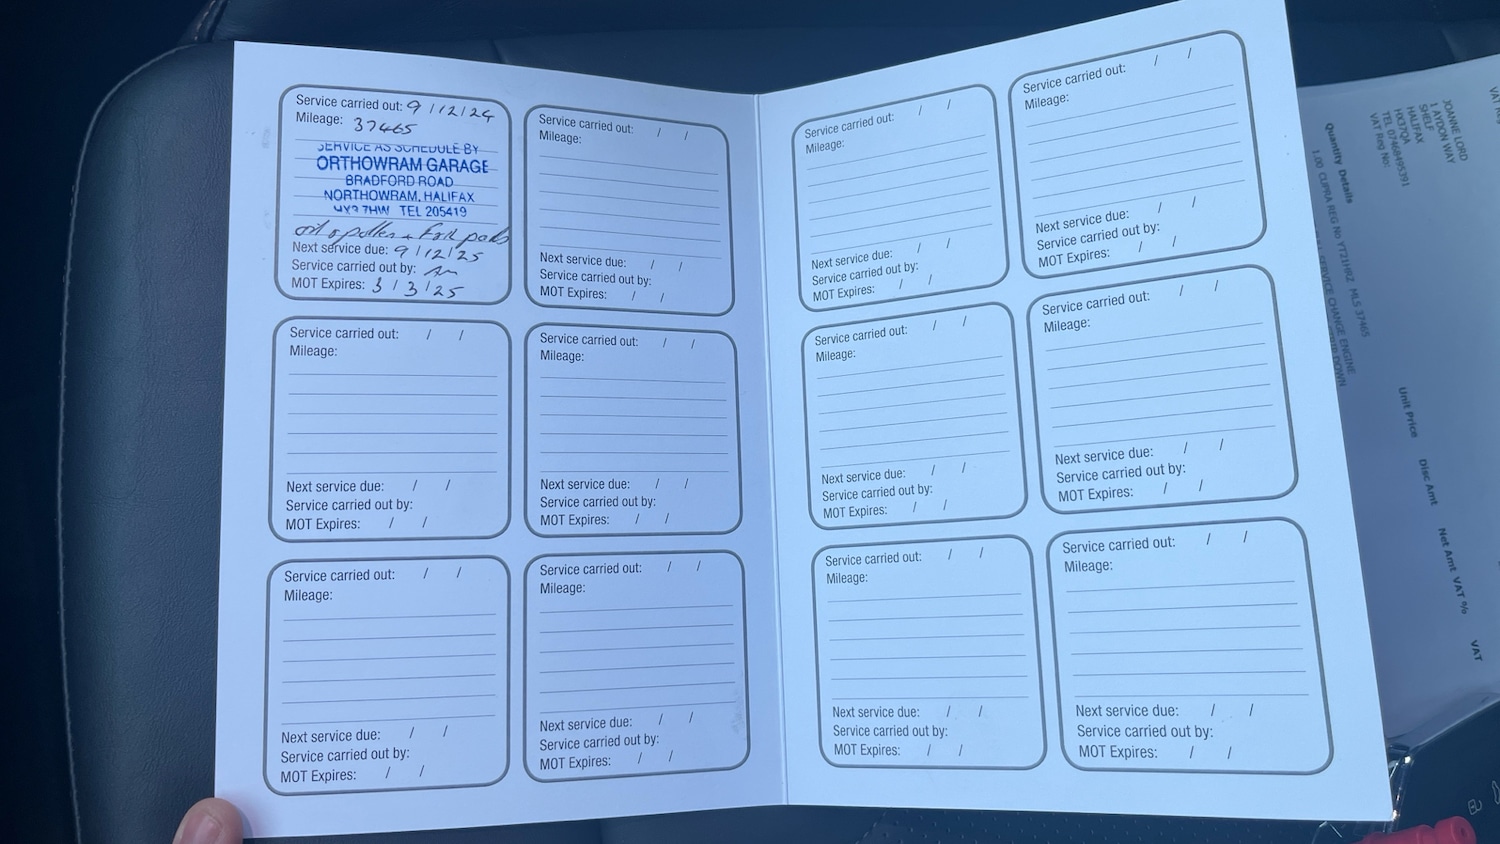 Service carried out: 9/12/24
Mileage: 37465
SERVICE AS SCHEDULE BY
ORTHOWRAM GARAGE
BRADFORD ROAD
NORTHOWRAM, HALIFAX
HX3 7HW TEL 205419
oil & pollen + Frit pads
Next service due: 9/12/25
Service carried out by:
MOT Expires: 3/3/25
Service carried out: / /
Mileage:
Next service due: / /
Service carried out by:
MOT Expires: / /
Service carried out: / /
Mileage:
Next service due: / /
Service carried out by:
MOT Expires: / /
Service carried out: / /
Mileage:
Next service due: / /
Service carried out by:
MOT Expires: / /
Service carried out: / /
Mileage:
Next service due: / /
Service carried out by:
MOT Expires: / /
Service carried out: / /
Mileage:
Next service due: / /
Service carried out by:
MOT Expires: / /
Service carried out: / /
Mileage:
Next service due: / /
Service carried out by:
MOT Expires: / /
Service carried out: / /
Mileage:
Next service due: / /
Service carried out by:
MOT Expires: / /
Service carried out: / /
Mileage:
Next service due: / /
Service carried out by:
MOT Expires: / /
Service carried out: / /
Mileage:
Next service due: / /
Service carried out by:
MOT Expires: / /
Service carried out: / /
Mileage:
Next service due: / /
Service carried out by:
MOT Expires: / /
Service carried out: / /
Mileage:
Next service due: / /
Service carried out by:
MOT Expires: / /
JOANNE LORD
1 AYDON WAY
SHELF
HALIFAX
HX37QA
TEL 07468495391
VAT Reg No:
Quantity Details
1.00 CUPRA REG No YT21HRZ MLS 37465
SERVICE CHANGE ENGINE
STRIP DOWN
Unit Price Disc Amt Net Amt VAT % VAT